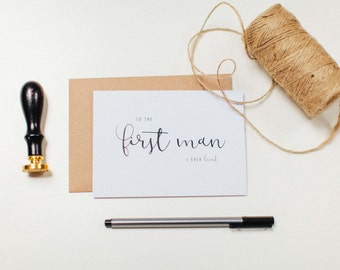 TO THE
first man
I EVER loved